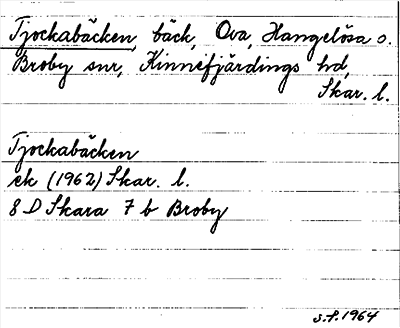 Tjockabäcken, bäck, Ova, Hangelösa o.
Broby snr, Kinnefjärdings hd,
Skar. l.
Tjockabäcken
ek (1962) Skar. l.
8 D Skara 7 b Broby
S.F. 1964